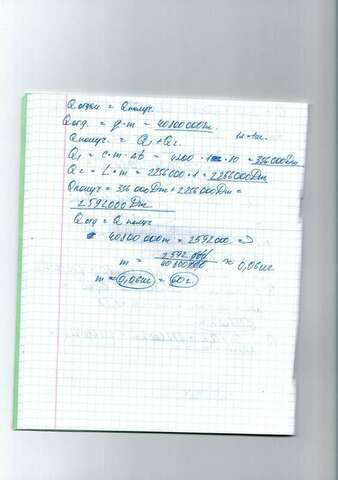 Qотдан = Qполуч.
Qотд. = q·m = 40800000m.
Qполуч. = Q₁ + Q₂.
Q₁ = c·m·Δt = 4200 · 1 · 80 = 336000Дж
Q₂ = L·m = 2256000·1 = 2256000Дж
Qполуч = 336000Дж + 2256000Дж =
2592000Дж
Qотд = Q получ
40800000m = 2592000 =>
m = 2592000/40800000 ≈ 0,06кг
m = 0,06кг = 60г.